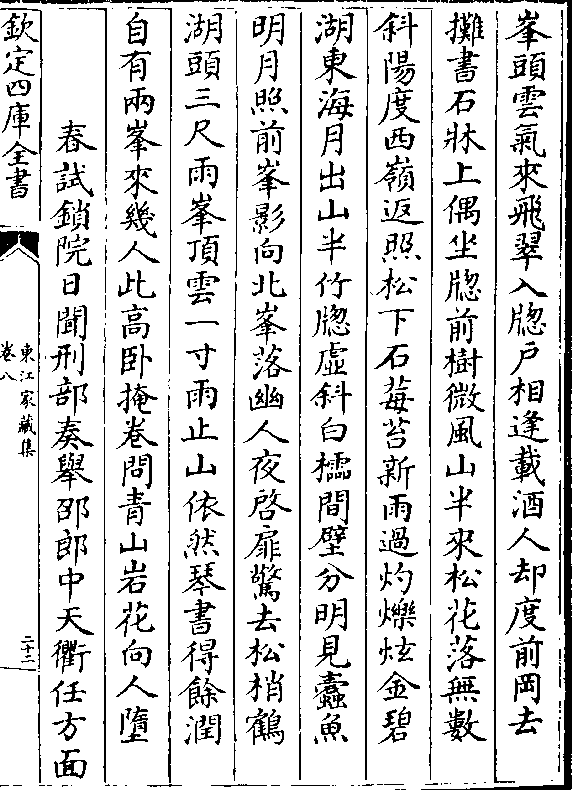 峯頭雲氣來飛翠入牕戶相逢載酒人却度前岡去
攤書石牀上偶坐牕前樹微風山半來松花落無數
斜陽度西嶺返照松下石莓苔新雨過灼爍炫金碧
湖東海月出山半竹牕虛斜白櫺間壁分明見蠹魚
明月照前峯影向北峯落幽人夜啓扉驚去松梢鶴
湖頭三尺雨峯頂雲一寸雨止山依然琴書得餘潤
自有兩峯來幾人此高卧掩卷問青山岩花向人墮
春試鎖院日聞刑部奏舉邵郎中天衢任方面
欽定四庫全書
東江家藏集
卷八
二十二